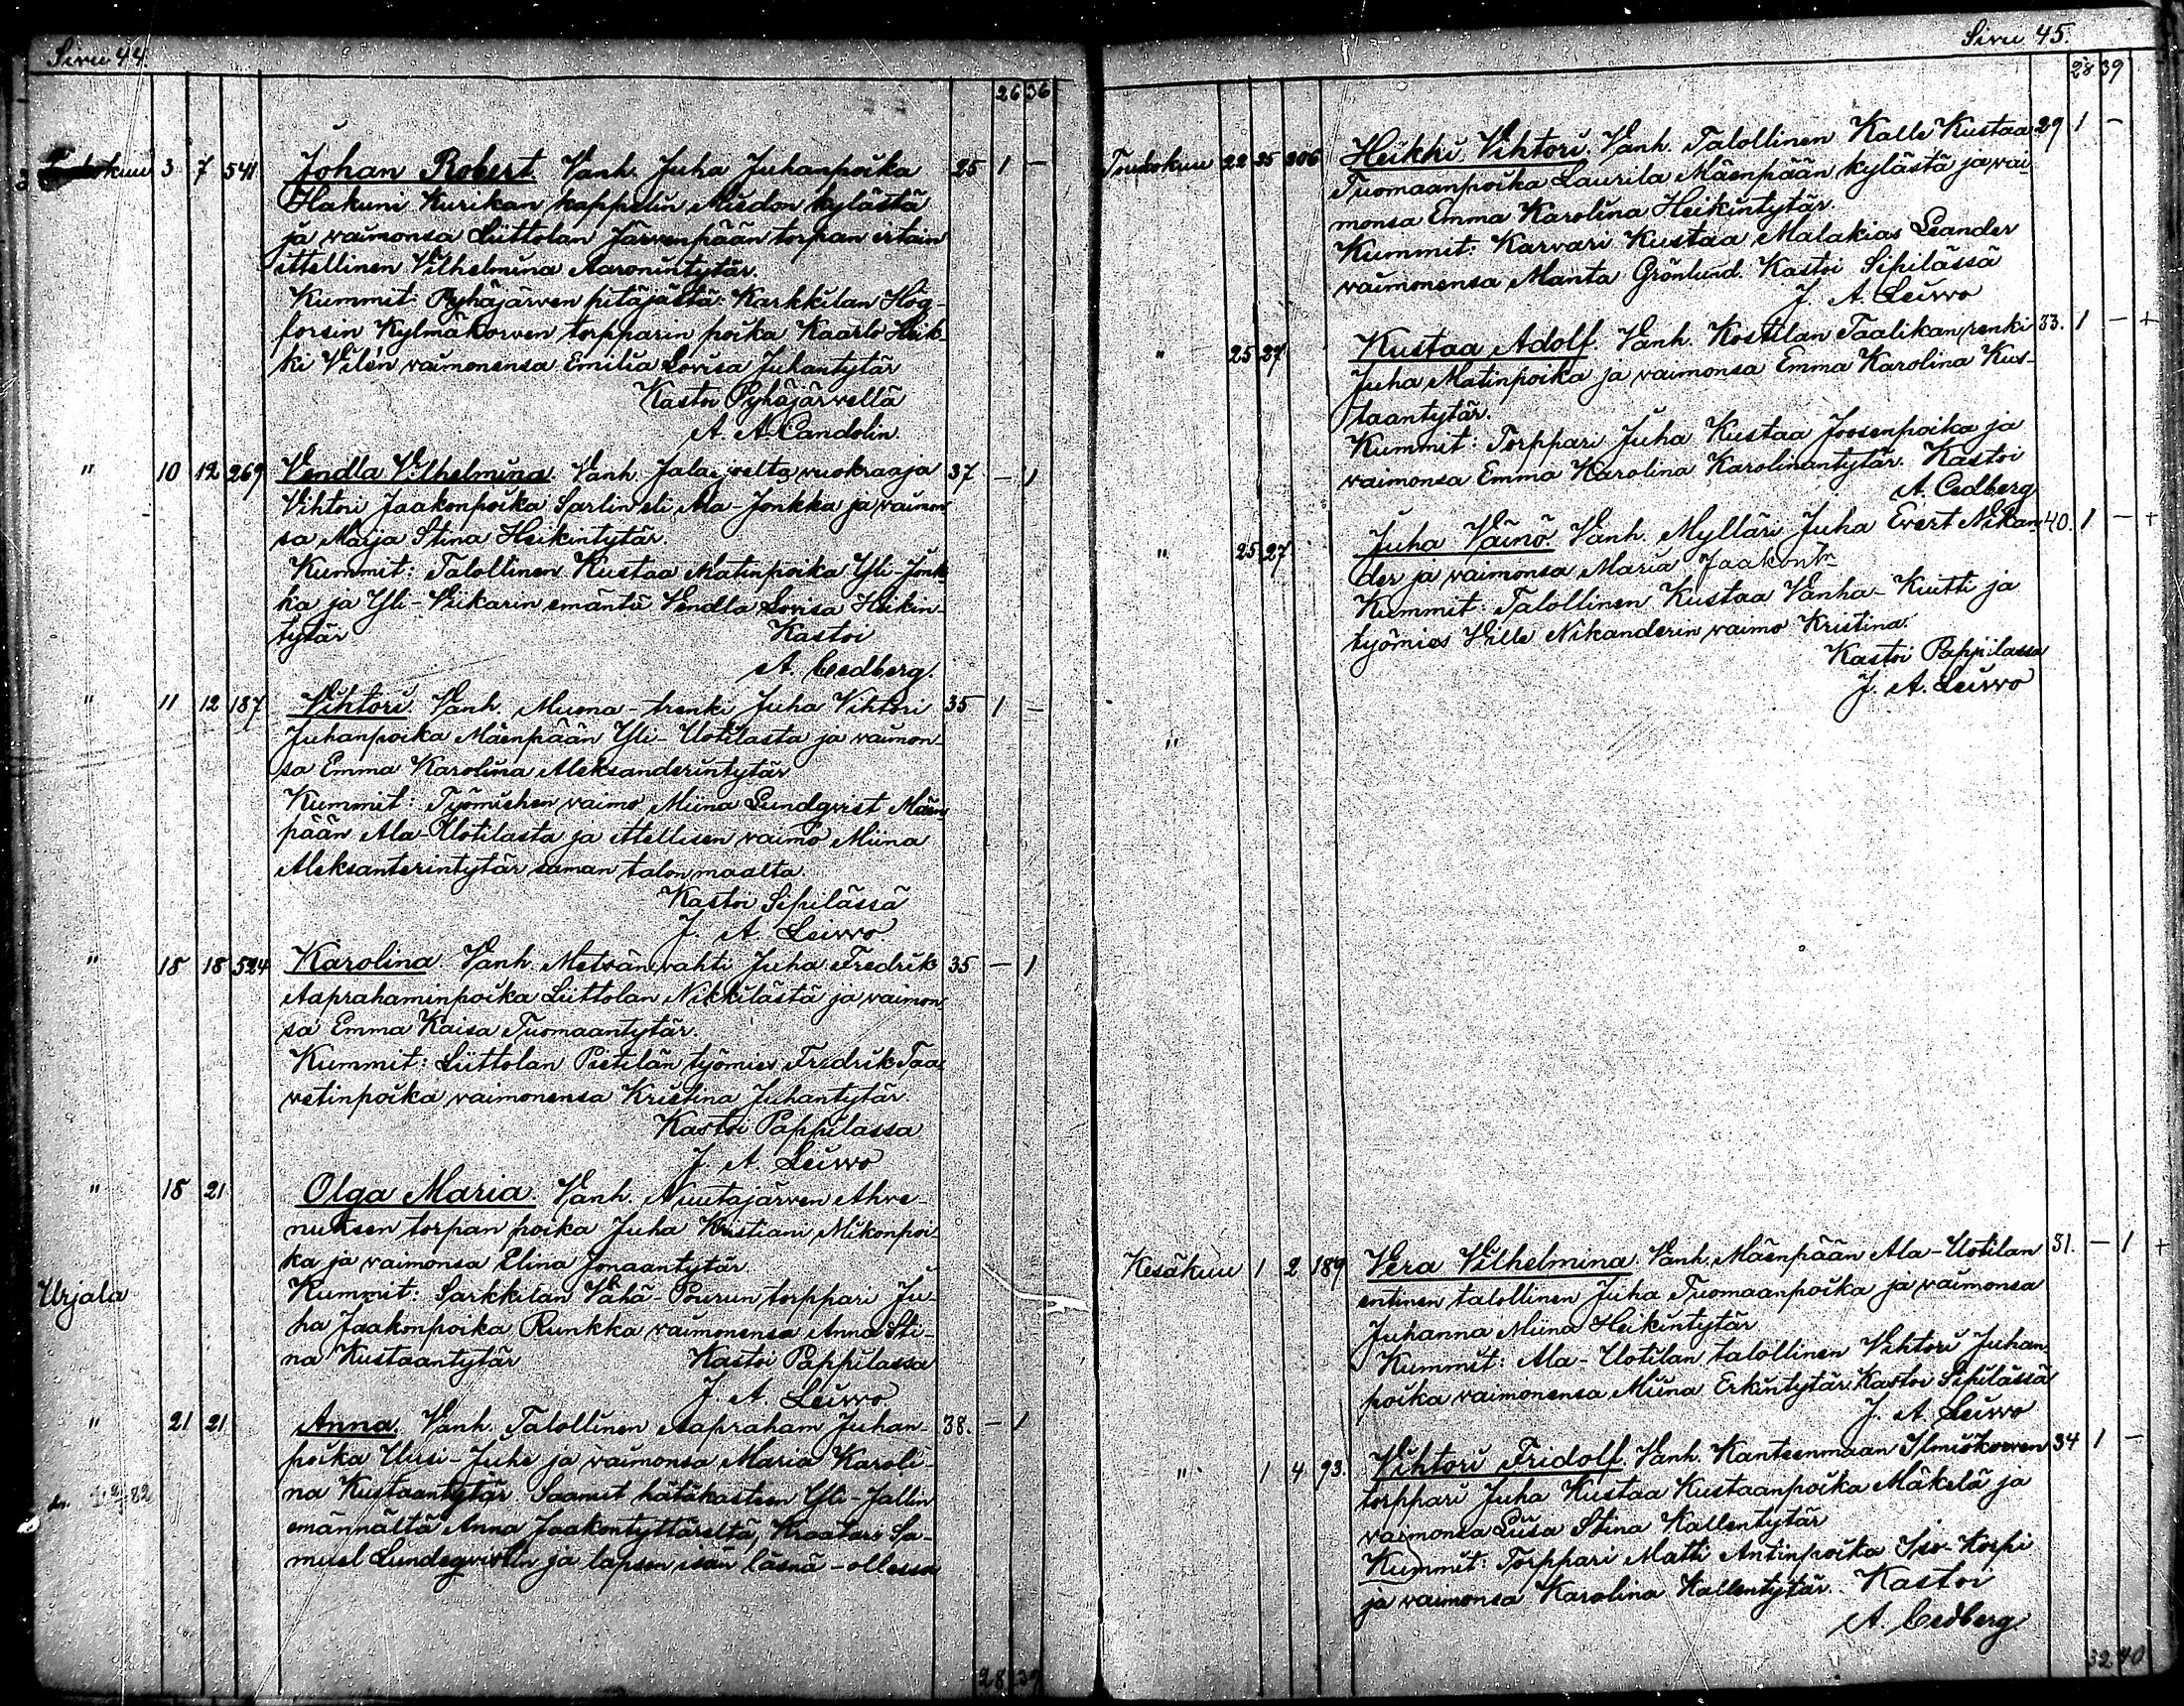 Sivu 44.
26 36
Toukokuu 3 7 541 Johan Robert. Vanh. Juha Juhanpoika 25 1 —
Hakuni Kurikan kappelin Miedon kylästä
ja vaimonsa Liittolan Järvenpään torpan
ittellinen Vilhelmina Aaronintytär.
Kummit: Pyhäjärven pitäjästä: Karkkilan Hög-
forsin Kylmäkorven torpparin poika Kaarlo Heik-
ki Vilén vaimonensa Emilia Lovisa Juhantytär
Kastoi Pyhäjärvellä
A. A. Candolin.
" 10 12 269 Vendla Vilhelmina. Vanh. Jalasjvelta, vuokraaja 37 — 1
Vihtori Jaakonpoika Sarlin eli Ala-Jonkka ja vaimon-
sa Maija Stina Heikintytär.
Kummit: Talollinen Kustaa Matinpoika Yli-Jonk-
ka ja Yli-Viikarin emäntä Vendla Lovisa Heikin-
tytär Kastoi
A. Cedberg.
" 11 12 187 Vihtori. Vanh. Muona-trenki Juha Vihtori 35 1 —
Juhanpoika Mäenpään Yli-Uotilasta ja vaimon-
sa Emma Karolina Aleksanderintytär
Kummit: Työmiehen vaimo Miina Lundqvist Mäen-
pään Ala-Uotilasta ja ittellisen vaimo Miina
Aleksanterintytär saman talon maalta.
Kastoi Sipilässä
J. A. Leivvo.
" 18 18 524 Karolina. Vanh. Metsänvahti Juha Fredrik 35 — 1
Aaprahaminpoika Liittolan Nikkilästä ja vaimon-
sa Emma Kaisa Tuomaantytär.
Kummit: Liittolan Pietilän työmies Fredrik Taa-
vetinpoika vaimonensa Kristina Juhantytär.
Kastoi Pappilassa
J. A. Leivvo
" 18 21 Olga Maria. Vanh. Nuutajärven Ahve-
nuksen torpan poika Juha Kristiani Mikonpoi-
ka ja vaimonsa Elina Jonaantytär.
Urjala Kummit: Sarkkilan Vähä-Pourun torppari Ju-
ha Jaakonpoika Runkka vaimonensa Anna Sti-
na Kustaantytär Kastoi Pappilassa
J. A. Leivvo
" 21 21 Anna. Vanh. Talollinen Aapraham Juhan- 38. — 1
poika Uusi-Juhe ja vaimonsa Maria Karoli-
na Kustaantytär. Saanut hätäkasteen Yli-Jallin
emännältä Anna Jaakontyttäreltä, Kraatari Sa-
muel Lundeqvistin ja lapsen isän läsnä-ollessa
28 39
Sivu 45.
28 39
Toukokuu 22 25 206 Heikki Vihtori. Vanh. Talollinen Kalle Kustaa 29 1 —
Tuomaanpoika Laurila Mäenpään kylästä ja vai-
monsa Emma Karolina Heikintytär.
Kummit: Karvari Kustaa Malakias Leander
vaimonensa Manta Grönlund. Kastoi Sipilässä
J. A. Leivvo
" 25 27 Kustaa Adolf. Vanh. Kostilan Taalikan renki 33. 1 — +
Juha Matinpoika ja vaimonsa Emma Karolina Kus-
taantytär.
Kummit: Torppari Juha Kustaa Joosenpoika ja
vaimonsa Emma Karolina Karolinantytär. Kastoi
A. Cedberg
" 25 27 Juha Väinö. Vanh. Mylläri Juha Evert Nikan- 40. 1 — +
der ja vaimonsa Maria Jaakontr
Kummit: Talollinen Kustaa Vanha-Kuitti ja
työmies Ville Nikanderin vaimo Kristina.
Kastoi Pappilassa
J. A. Leivvo
"
Kesäkuu 1 2 189 Vera Vilhelmina. Vanh. Mäenpään Ala-Uotilan 31. — 1 +
entinen talollinen Juha Tuomaanpoika ja vaimonsa
Juhanna Miina Heikintytär
Kummit: Ala-Uotilan talollinen Vihtori Juhan-
poika vaimonensa Miina Erkintytär. Kastoi Sipilässä
J. A. Leivvo
" 1 4 93. Vihtori Fridolf. Vanh. Kanteenmaan Ilmiökorven 34 1 —
torppari Juha Kustaa Kustaanpoika Mäkelä ja
vaimonsa Liisa Stina Kallentytär
Kummit: Torppari Matti Antinpoika Iso-Korpi
ja vaimonsa Karolina Kallentytär. Kastoi
A. Cedberg.
32 40